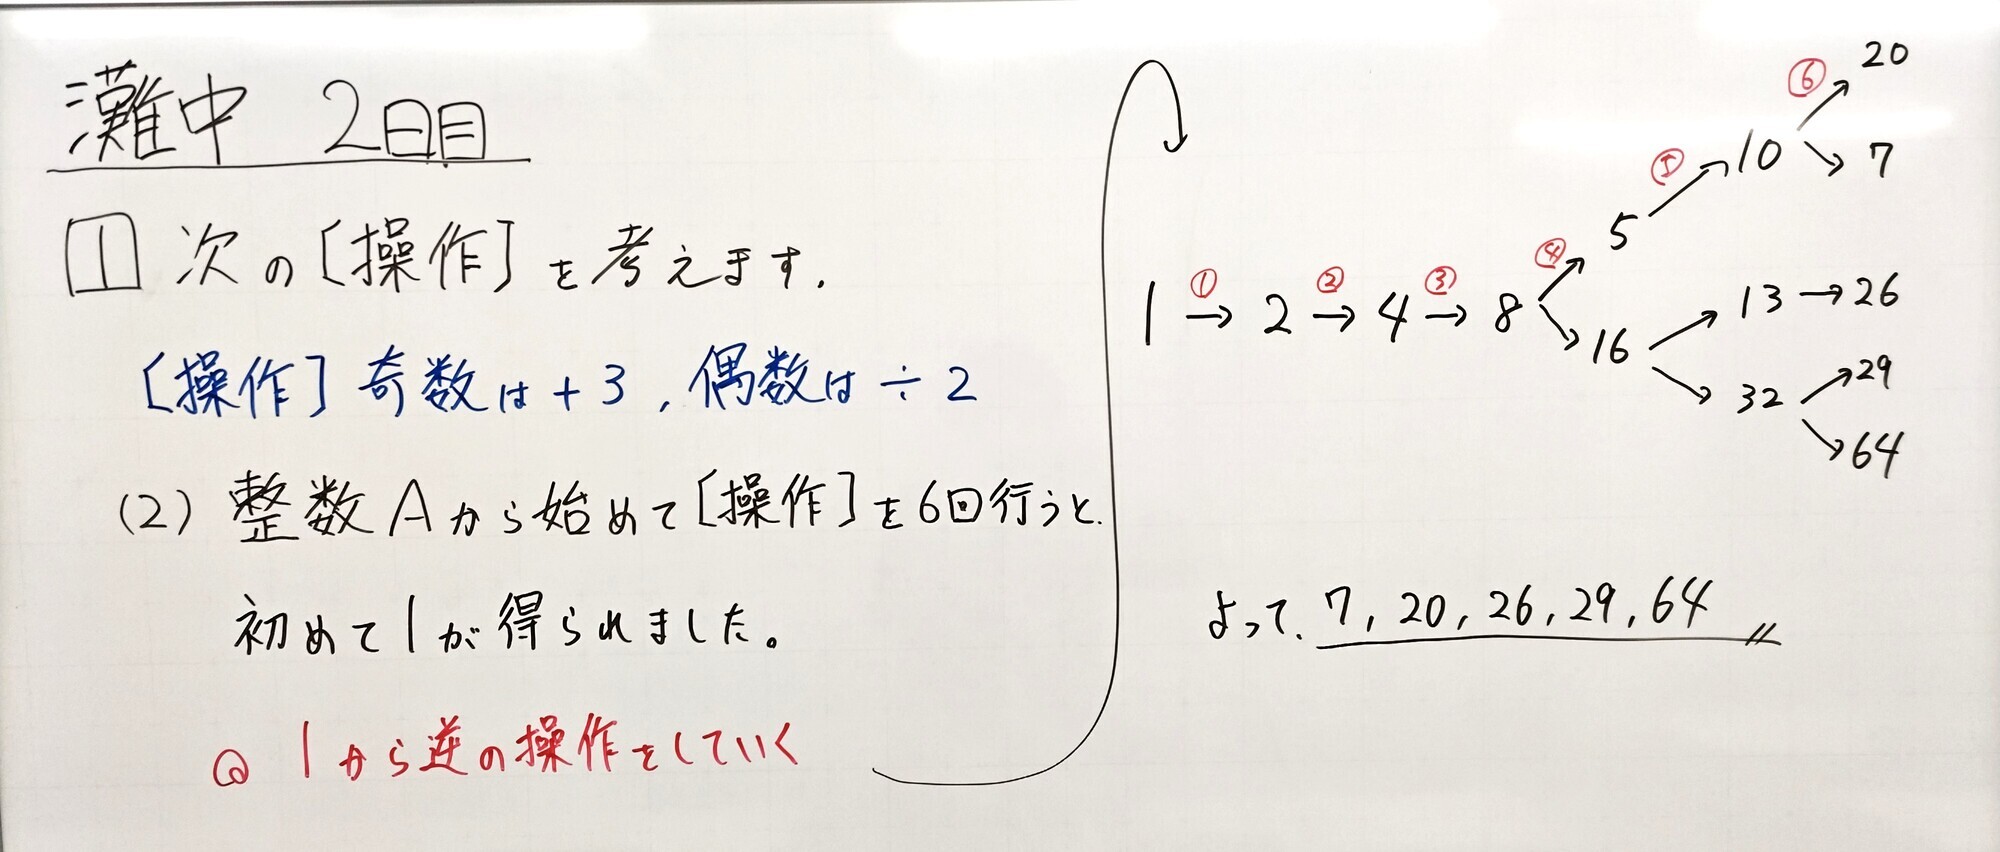 灘中 2日目
1 次の[操作]を考えます.
[操作] 奇数は+3, 偶数は÷2
(2) 整数Aから始めて[操作]を6回行うと、
初めて1が得られました。
1から逆の操作をしていく
⑥ 20
⑤ 10 → 7
④ 5
1 ①→ 2 ②→ 4 ③→ 8
16 → 13 → 26
32 → 29
→ 64
よって、7, 20, 26, 29, 64